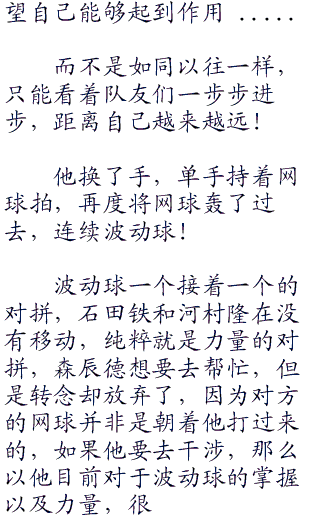 望自己能够起到作用 .....
而不是如同以往一样，
只能看着队友们一步步进
步，距离自己越来越远！
他换了手，单手持着网
球拍，再度将网球轰了过
去，连续波动球！
波动球一个接着一个的
对拼，石田铁和河村隆在没
有移动，纯粹就是力量的对
拼，森辰德想要去帮忙，但
是转念却放弃了，因为对方
的网球并非是朝着他打过来
的，如果他要去干涉，那么
以他目前对于波动球的掌握
以及力量，很